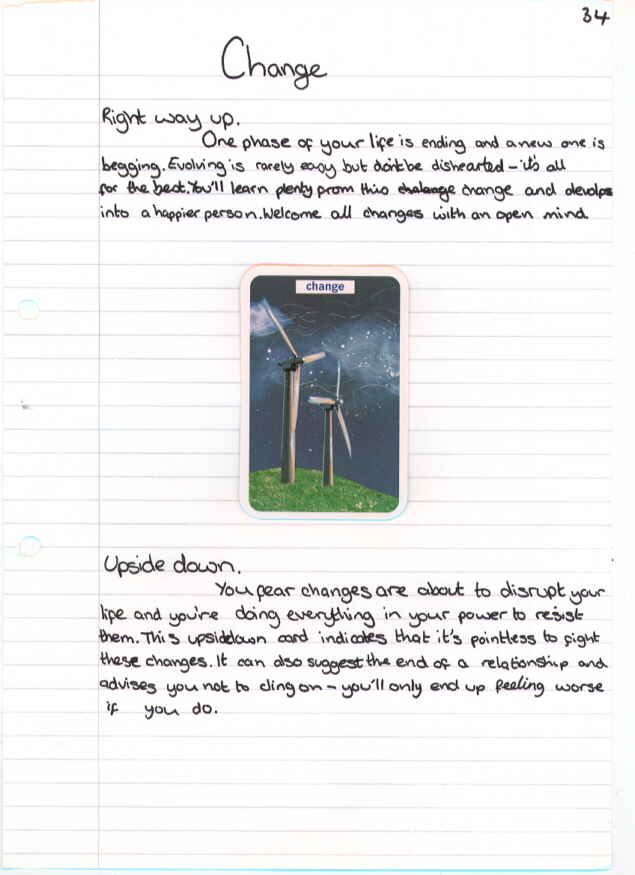 34
Change
Right way up.
One phase of your life is ending and a new one is
begging. Evolving is rarely easy but don't be disheartted - it's all
for the best. You'll learn plenty from this change and devolps
into a happier person. Welcome all changes with an open mind.
change
Upside down.
You fear changes are about to disrupt your
life and you're doing everything in your power to resist
them. This upsidedown card indicates that it's pointless to fight
these changes. It can also suggest the end of a relationship and
advises you not to cling on - you'll only end up feeling worse
if you do.